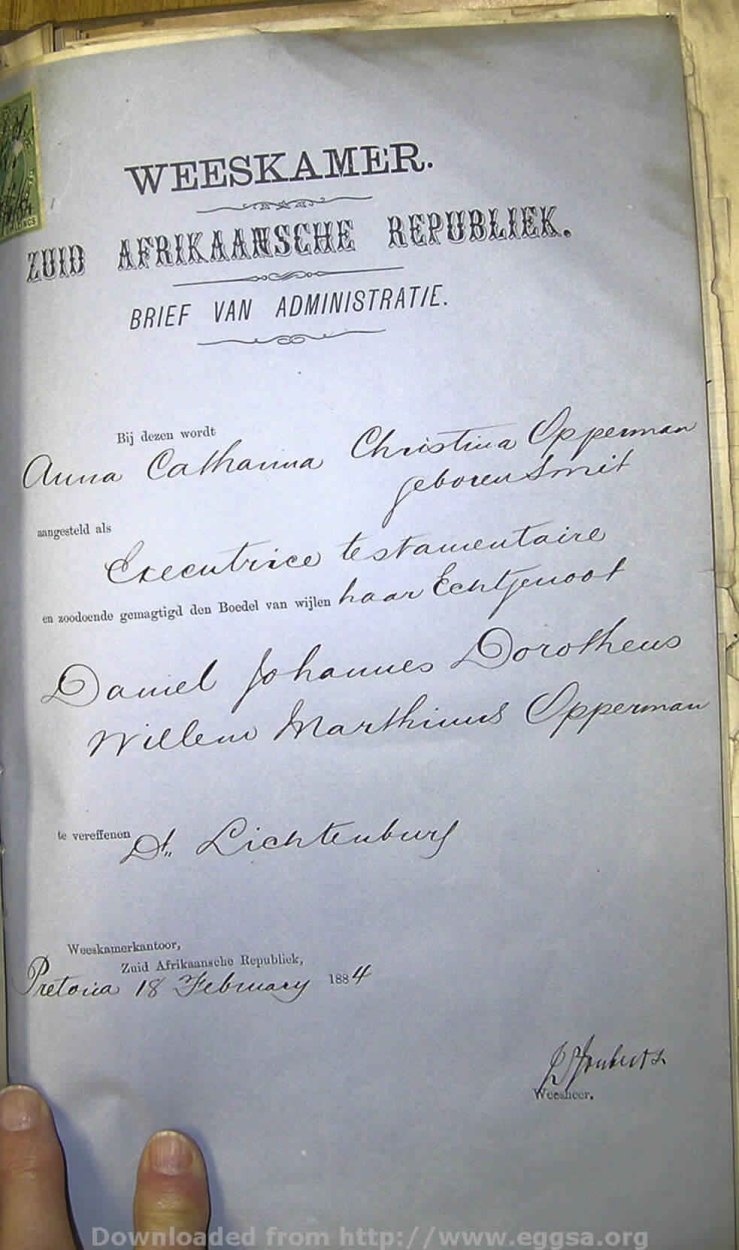 WEESKAMER.
ZUID AFRIKAANSCHE REPUBLIEK.
BRIEF VAN ADMINISTRATIE.
Bij dezen wordt
Anna Catharina Christina Opperman
geboren Smit
aangesteld als
Executrice testamentaire
en zoodoende gemagtigd den Boedel van wijlen haar Echtgenoot
Daniel Johannes Dorotheus
Willem Marthinus Opperman
te vereffenen Dt. Lichtenburg
Weeskamerkantoor,
Zuid Afrikaansche Republiek,
Pretoria 18 February 1884
Weesheer.
Downloaded from http://www.eggsa.org